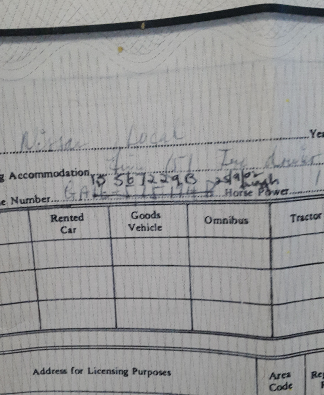 Nissan Local Yea
g Accommodation Five (5) Inc driver
15 567229B 25/9/02
e Number Horse Power 1
Rented Car Goods Vehicle Omnibus Tractor
Address for Licensing Purposes Area Code Re